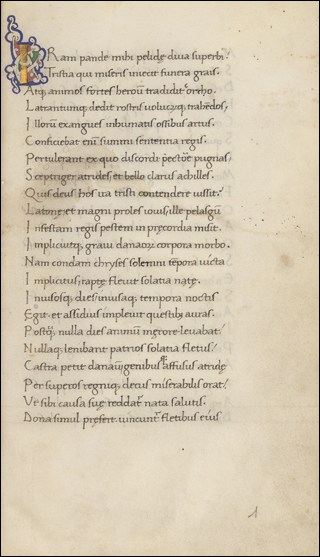 IRam pande mihi pelidę diua superbi·
Tristia quę miseris iniecit funera grais·
Atq; animos fortes heroū tradidit orcho·
Latrantumq; dedit rostris uolucrūq; trahēdos;
Illorū exangues inhumatis ossibus artus·
Conficiebat enī summi sententia regis·
Pertulerant ex quo discordi pectore pugnas;
Sceptriger atrides et bello clarus achilles·
Quis deus hos ira tristi contendere iussit?
Latonę et magni proles iouis; ille pelasgū
Infestam regis pestem in pręcordia misit·
Implicuitq; graui danaorū corpora morbo·
Nam condam chryses solemni tēpora uicta
Implicitus; raptę fleuit solatia natę·
Inuisosq; dies; inuisaq; tempora noctis
Egit· et assiduis impleuit questib; auras·
Postq̄ nulla dies animū męrore leuabat;
Nullaq; lenibant patrios solatia fletus;
Castra petit danaū; genibusq; affusus atridę
Per superos regniq; decus miserabilis orat;
Ut sibi causa suę reddat̄ nata salutis·
Dona simul pręfert· uincunt̄ fletibus eius
1